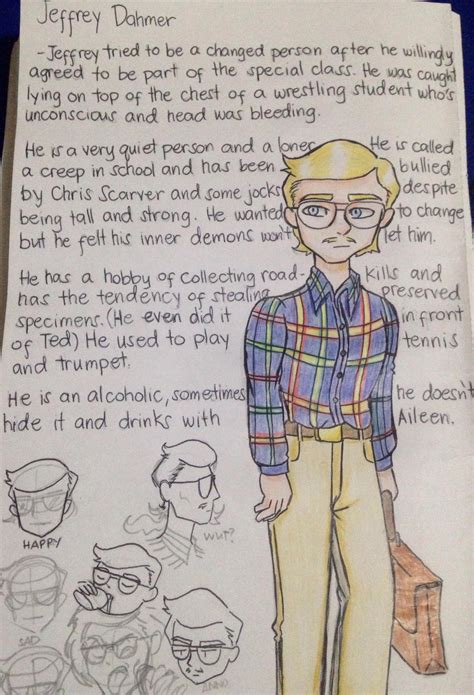 Jeffrey Dahmer
-Jeffrey tried to be a changed person after he willingly
agreed to be part of the special class. He was caught
lying on top of the chest of a wrestling student who's
unconscious and head was bleeding.
He is a very quiet person and a loner. He is called
a creep in school and has been bullied
by Chris Scarver and some jocks despite
being tall and strong. He wanted to change
but he felt his inner demons won't let him.
He has a hobby of collecting road- kills and
has the tendency of stealing preserved
specimens. (He even did it in front
of Ted) He used to play tennis
and trumpet.
He is an alcoholic, sometimes he doesn't
hide it and drinks with Aileen.
HAPPY
WUT?
SAD